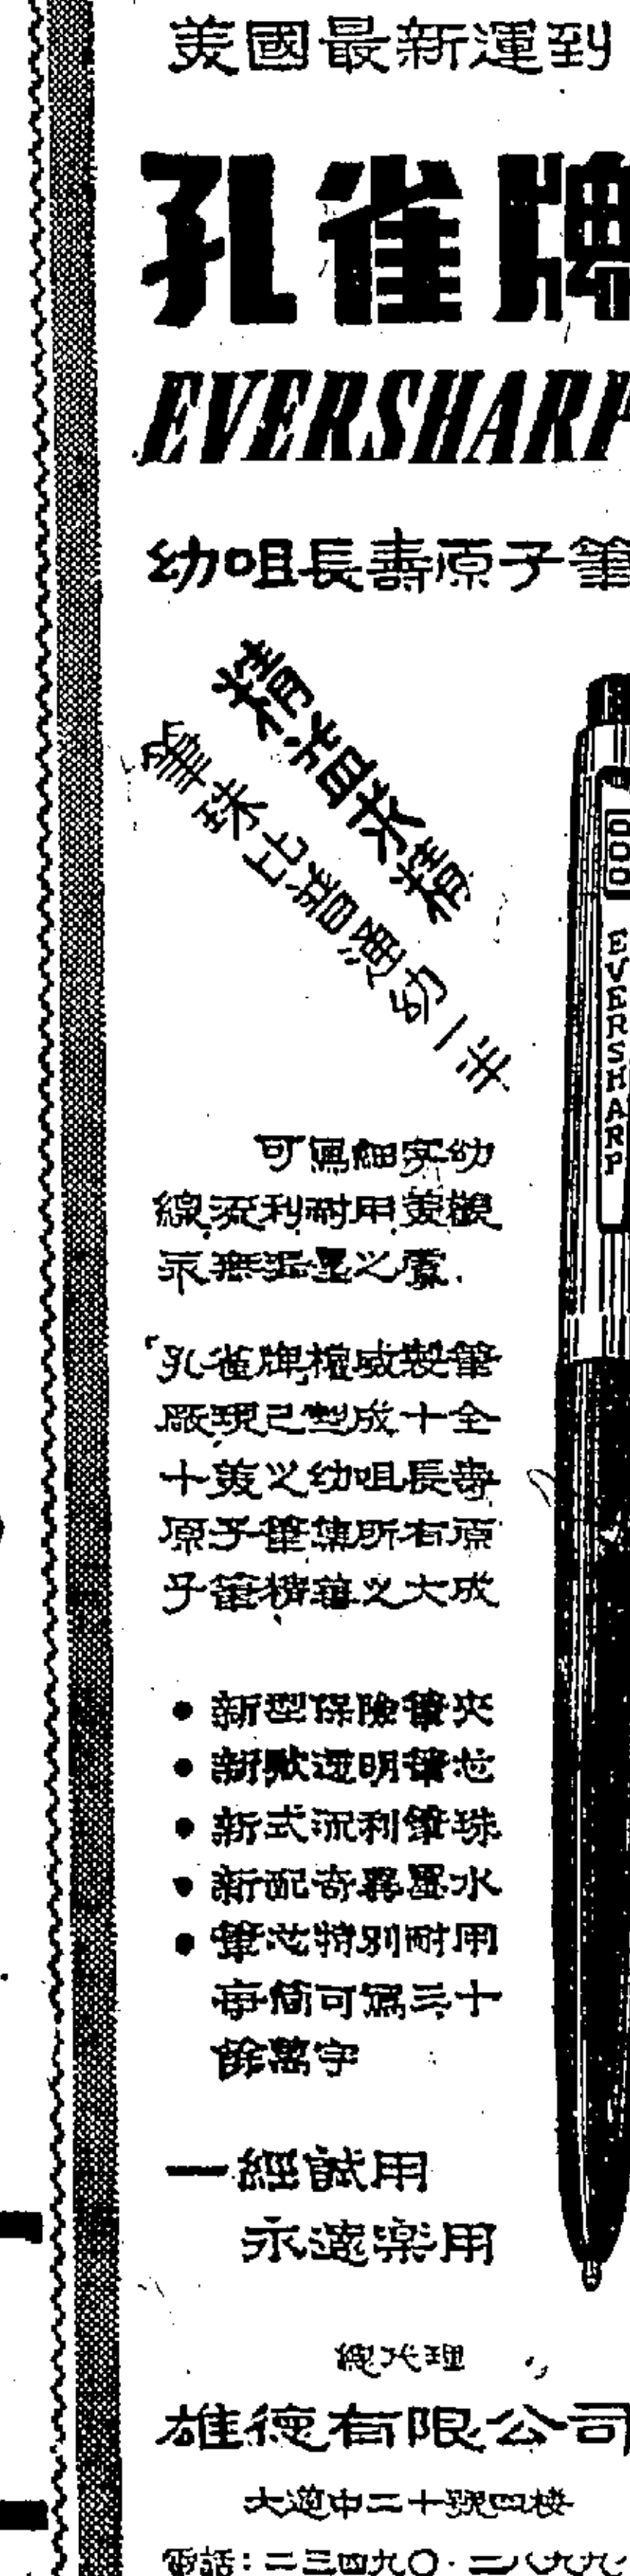 美國最新運到
孔雀牌
EVERSHARP
幼咀長壽原子筆
精益求精
筆珠比普通幼一半
可寫細字幼
線流利耐用美觀
永無漏墨之虞.
「孔雀牌權威製筆
廠現已製成十全
十美之幼咀長壽
原子筆集所有原
子筆精華之大成
• 新型保險筆夾
• 新款透明筆芯
• 新式流利筆珠
• 新配奇異墨水
• 筆芯特別耐用
每筒可寫三十
餘萬字
一經試用
永遠樂用
總代理
雄德有限公司
大道中二十號四樓
電話：二三四九〇·二八九九
EVERSHARP